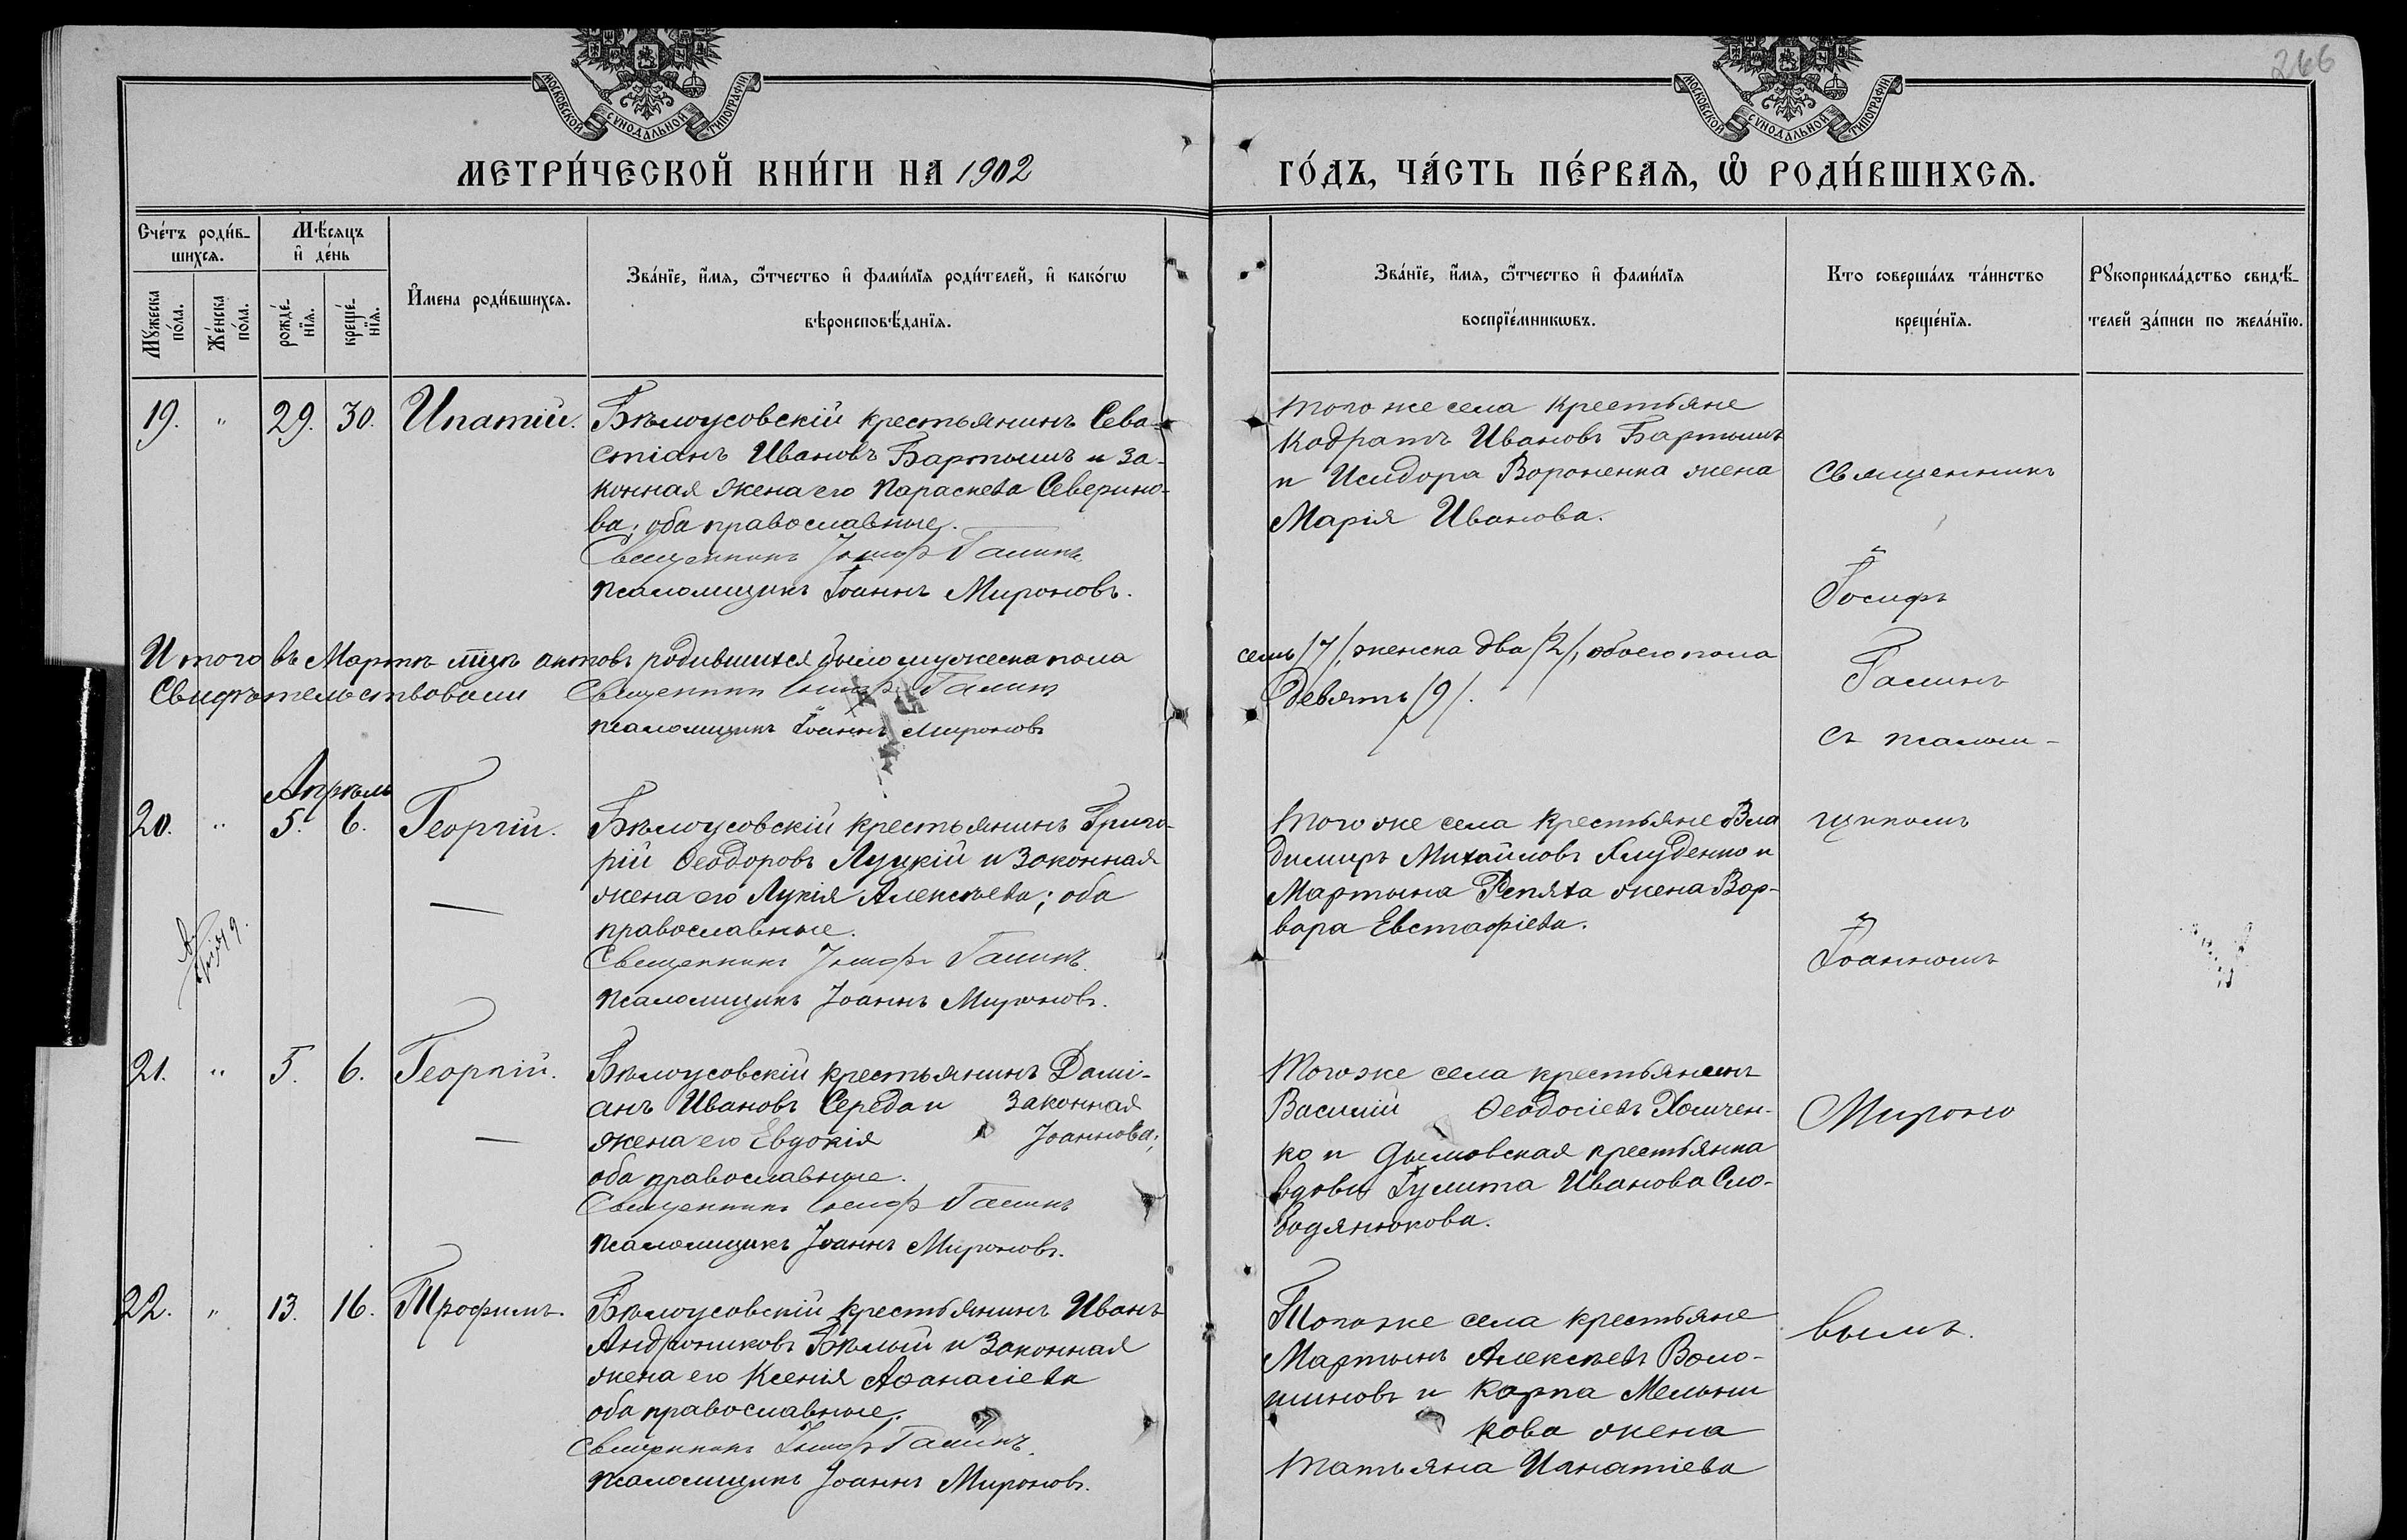 266
МОСКОВСКОЙ СѴНОДАЛЬНОЙ ТИПОГРАФІИ
МОСКОВСКОЙ СѴНОДАЛЬНОЙ ТИПОГРАФІИ
МЕТРИ́ЧЕСКОЙ КНИ́ГИ НА 1902
ГО́ДЪ, ЧА́СТЬ ПЕ́РВАѦ, Ѡ҆ РОДИ́ВШИХСѦ.
Сче́тъ роди́в-
шихсѧ.
Мꙋ́жеска
по́ла.
Же́нска
по́ла.
Мѣ́сѧцъ
и҆ де́нь
рожде́-
нїѧ.
креще́-
нїѧ.
И҆мена роди́вшихсѧ.
Зва́нїе, и҆́мѧ, ѻ҆́тчество и҆ фами́лїѧ роди́телей, и҆ како́гѡ
вѣроисповѣ́данїѧ.
Зва́нїе, и҆́мѧ, ѻ҆́тчество и҆ фами́лїѧ
воспрїе́мникѡвъ.
Кто соверша́лъ та́инство
креще́нїѧ.
Рꙋкоприкла́дство свидѣ́-
телей за́писи по жела́нїю.
19. " 29. 30. Ипатій.
Бѣлоусовскій крестьянинъ Сева-
стіанъ Ивановъ Бартышъ и за-
конная жена его Параскева Северино-
ва; оба православные.
Священникъ Іосиф Галинъ.
Псаломщикъ Іоаннъ Мироновъ.
того же села крестьяне
Кодратъ Ивановъ Бартышъ
и Исидора Вороненка жена
Марія Иванова.
Священникъ
Іосифъ
Галинъ
съ псалом-
щикомъ
Іоанномъ
Мироно
вымъ.
Итого въ Мартѣ мцѣ актовъ родившихся было мужеска пола
семь /7/, женска два /2/, обоего пола
девять /9/.
Свидѣтельствовали Священникъ Іосиф Галинъ
псаломщикъ Іоаннъ Мироновъ
Апрѣль
20. " 5. 6. Георгій.
Бѣлоусовскій крестьянинъ Григо-
рій Ѳеодоровъ Луцкій и законная
жена его Лукія Алексѣева; оба
православные.
Священникъ Іосиф Галинъ.
Псаломщикъ Іоаннъ Мироновъ.
Того же села крестьяне Вла
димиръ Михайловъ Глуденко и
Мартына Репяха жена Вар-
вара Евстафіева.
21. " 5. 6. Георгій.
Бѣлоусовскій крестьянинъ Дамі-
анъ Ивановъ Середа и законная
жена его Евдокія Іоаннова;
оба православные.
Священникъ Іосиф Галинъ
Псаломщикъ Іоаннъ Мироновъ.
Того же села крестьянинъ
Василій Ѳеодосіевъ Хомчен-
ко и Дымовская крестьянка
вдова Іулита Иванова Сло-
бодянюкова.
22. " 13. 16. Трофимъ.
Бѣлоусовскій крестьянинъ Иванъ
Андрониковъ Бѣлый и законная
жена его Ксенія Аѳанасіева
оба православные.
Священникъ Іосиф Галинъ.
Псаломщикъ Іоаннъ Мироновъ.
Того же села крестьяне
Мартынъ Алексѣевъ Воло-
шиновъ и Карпа Мельни
кова жена
Татьяна Игнатіева